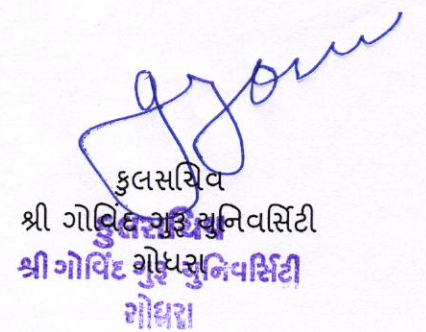 કુલસચિવ
શ્રી ગોવિંદ ગુરૂ યુનિવર્સિટી
ગોધરા
કુલસચિવ
શ્રી ગોવિંદ ગુરૂ યુનિવર્સિટી
ગોધરા